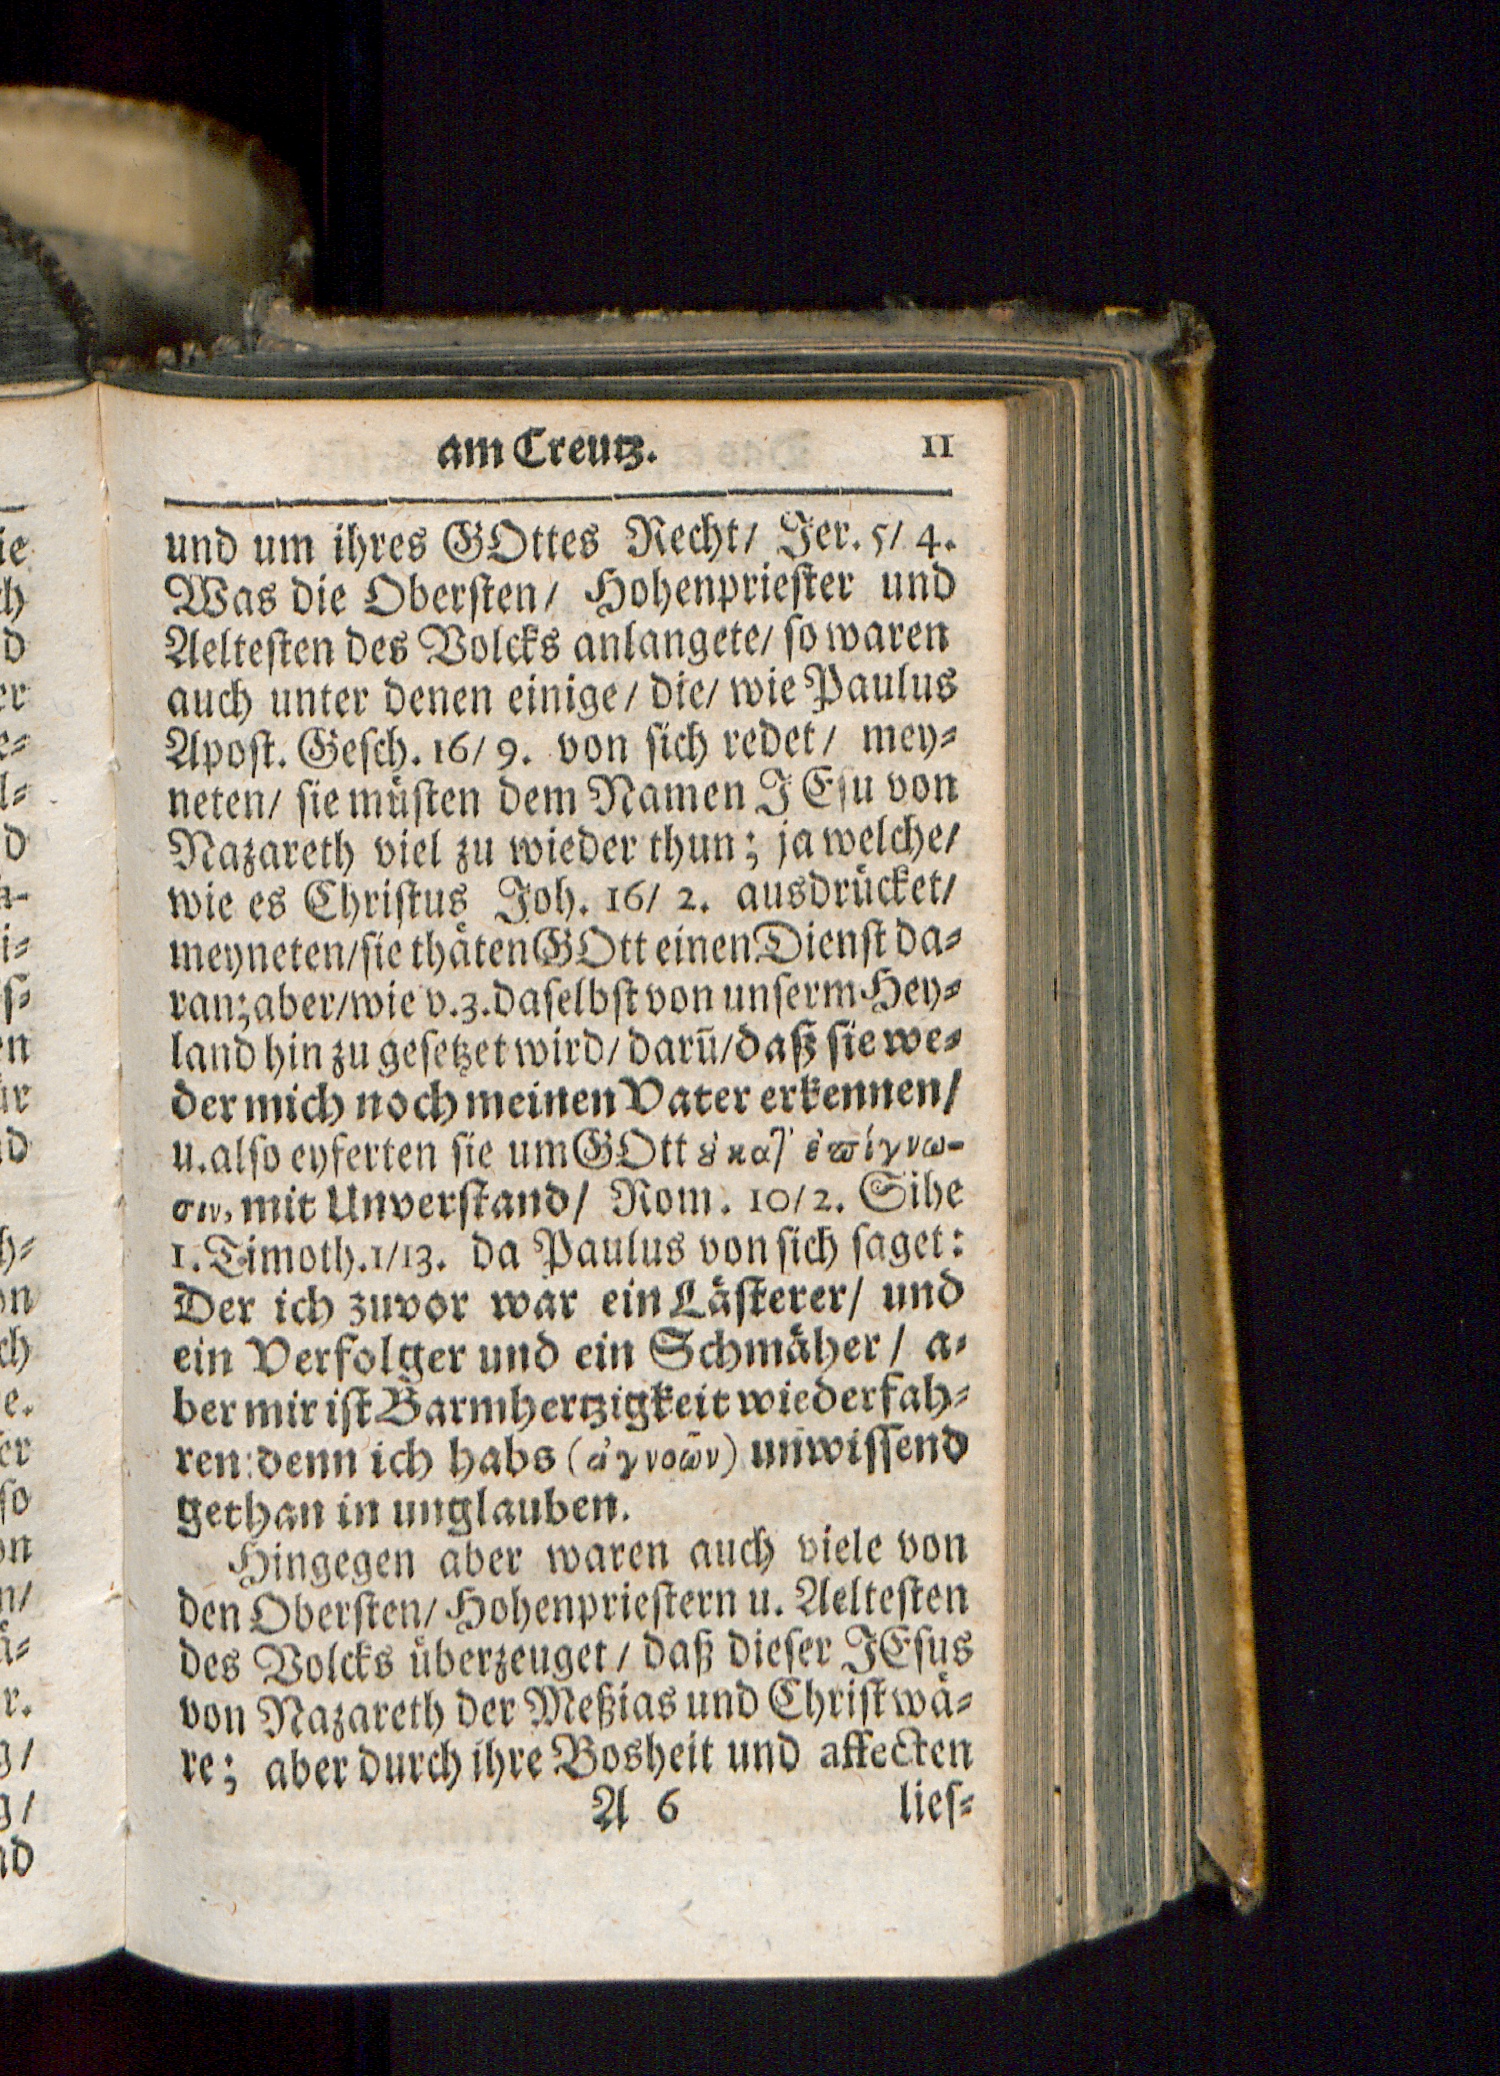 am Creutz. 11
und um ihres GOttes Recht/ Jer. 5/ 4.
Was die Obersten/ Hohenpriester und
Aeltesten des Volcks anlangete/ so waren
auch unter denen einige/ die/ wie Paulus
Apost. Gesch. 16/ 9. von sich redet/ mey-
neten/ sie müsten dem Namen JEsu von
Nazareth viel zu wieder thun; ja welche/
wie es Christus Joh. 16/ 2. ausdrücket/
meyneten/ sie thäten GOtt einen Dienst da-
ran; aber/ wie v. 3. daselbst von unserm Hey-
land hin zu gesetzet wird/ darum̄/ daß sie we-
der mich noch meinen Vater erkennen/
u. also eyferten sie um GOtt ȣ κατ' ἐπίγνω-
σιν, mit Unverstand/ Rom. 10/2. Sihe
1. Timoth. 1/13. da Paulus von sich saget:
Der ich zuvor war ein Lästerer/ und
ein Verfolger und ein Schmäher/ a-
ber mir ist Barmhertzigkeit wiederfah-
ren: denn ich habs (ἀγνοῶν) unwissend
gethan in unglauben.
Hingegen aber waren auch viele von
den Obersten/ Hohenpriestern u. Aeltesten
des Volcks überzeuget/ daß dieser JEsus
von Nazareth der Meßias und Christ wä-
re; aber durch ihre Bosheit und affecten
A 6 lies-